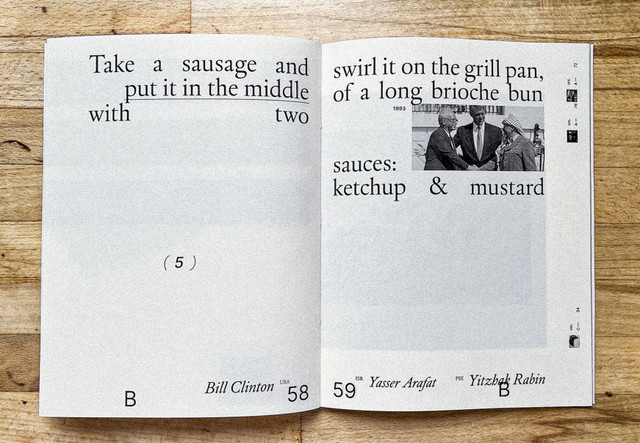 Take a sausage and
put it in the middle
with two
( 5 )
Bill Clinton USA 58
B
swirl it on the grill pan,
of a long brioche bun
1993
sauces:
ketchup & mustard
59 ISR Yasser Arafat PSE Yitzhak Rabin
B
72
78
34